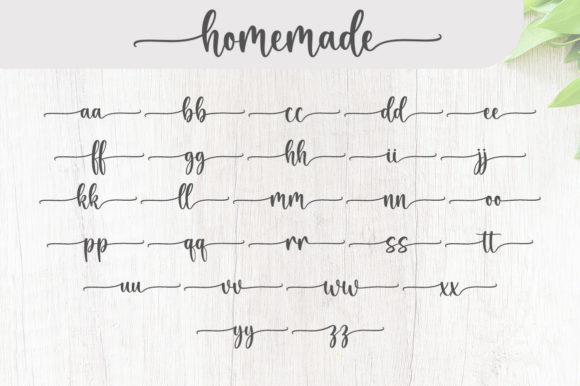 homemade
aa bb cc dd ee
ff gg hh ii jj
kk ll mm nn oo
pp qq rr ss tt
uu vv ww xx
yy zz